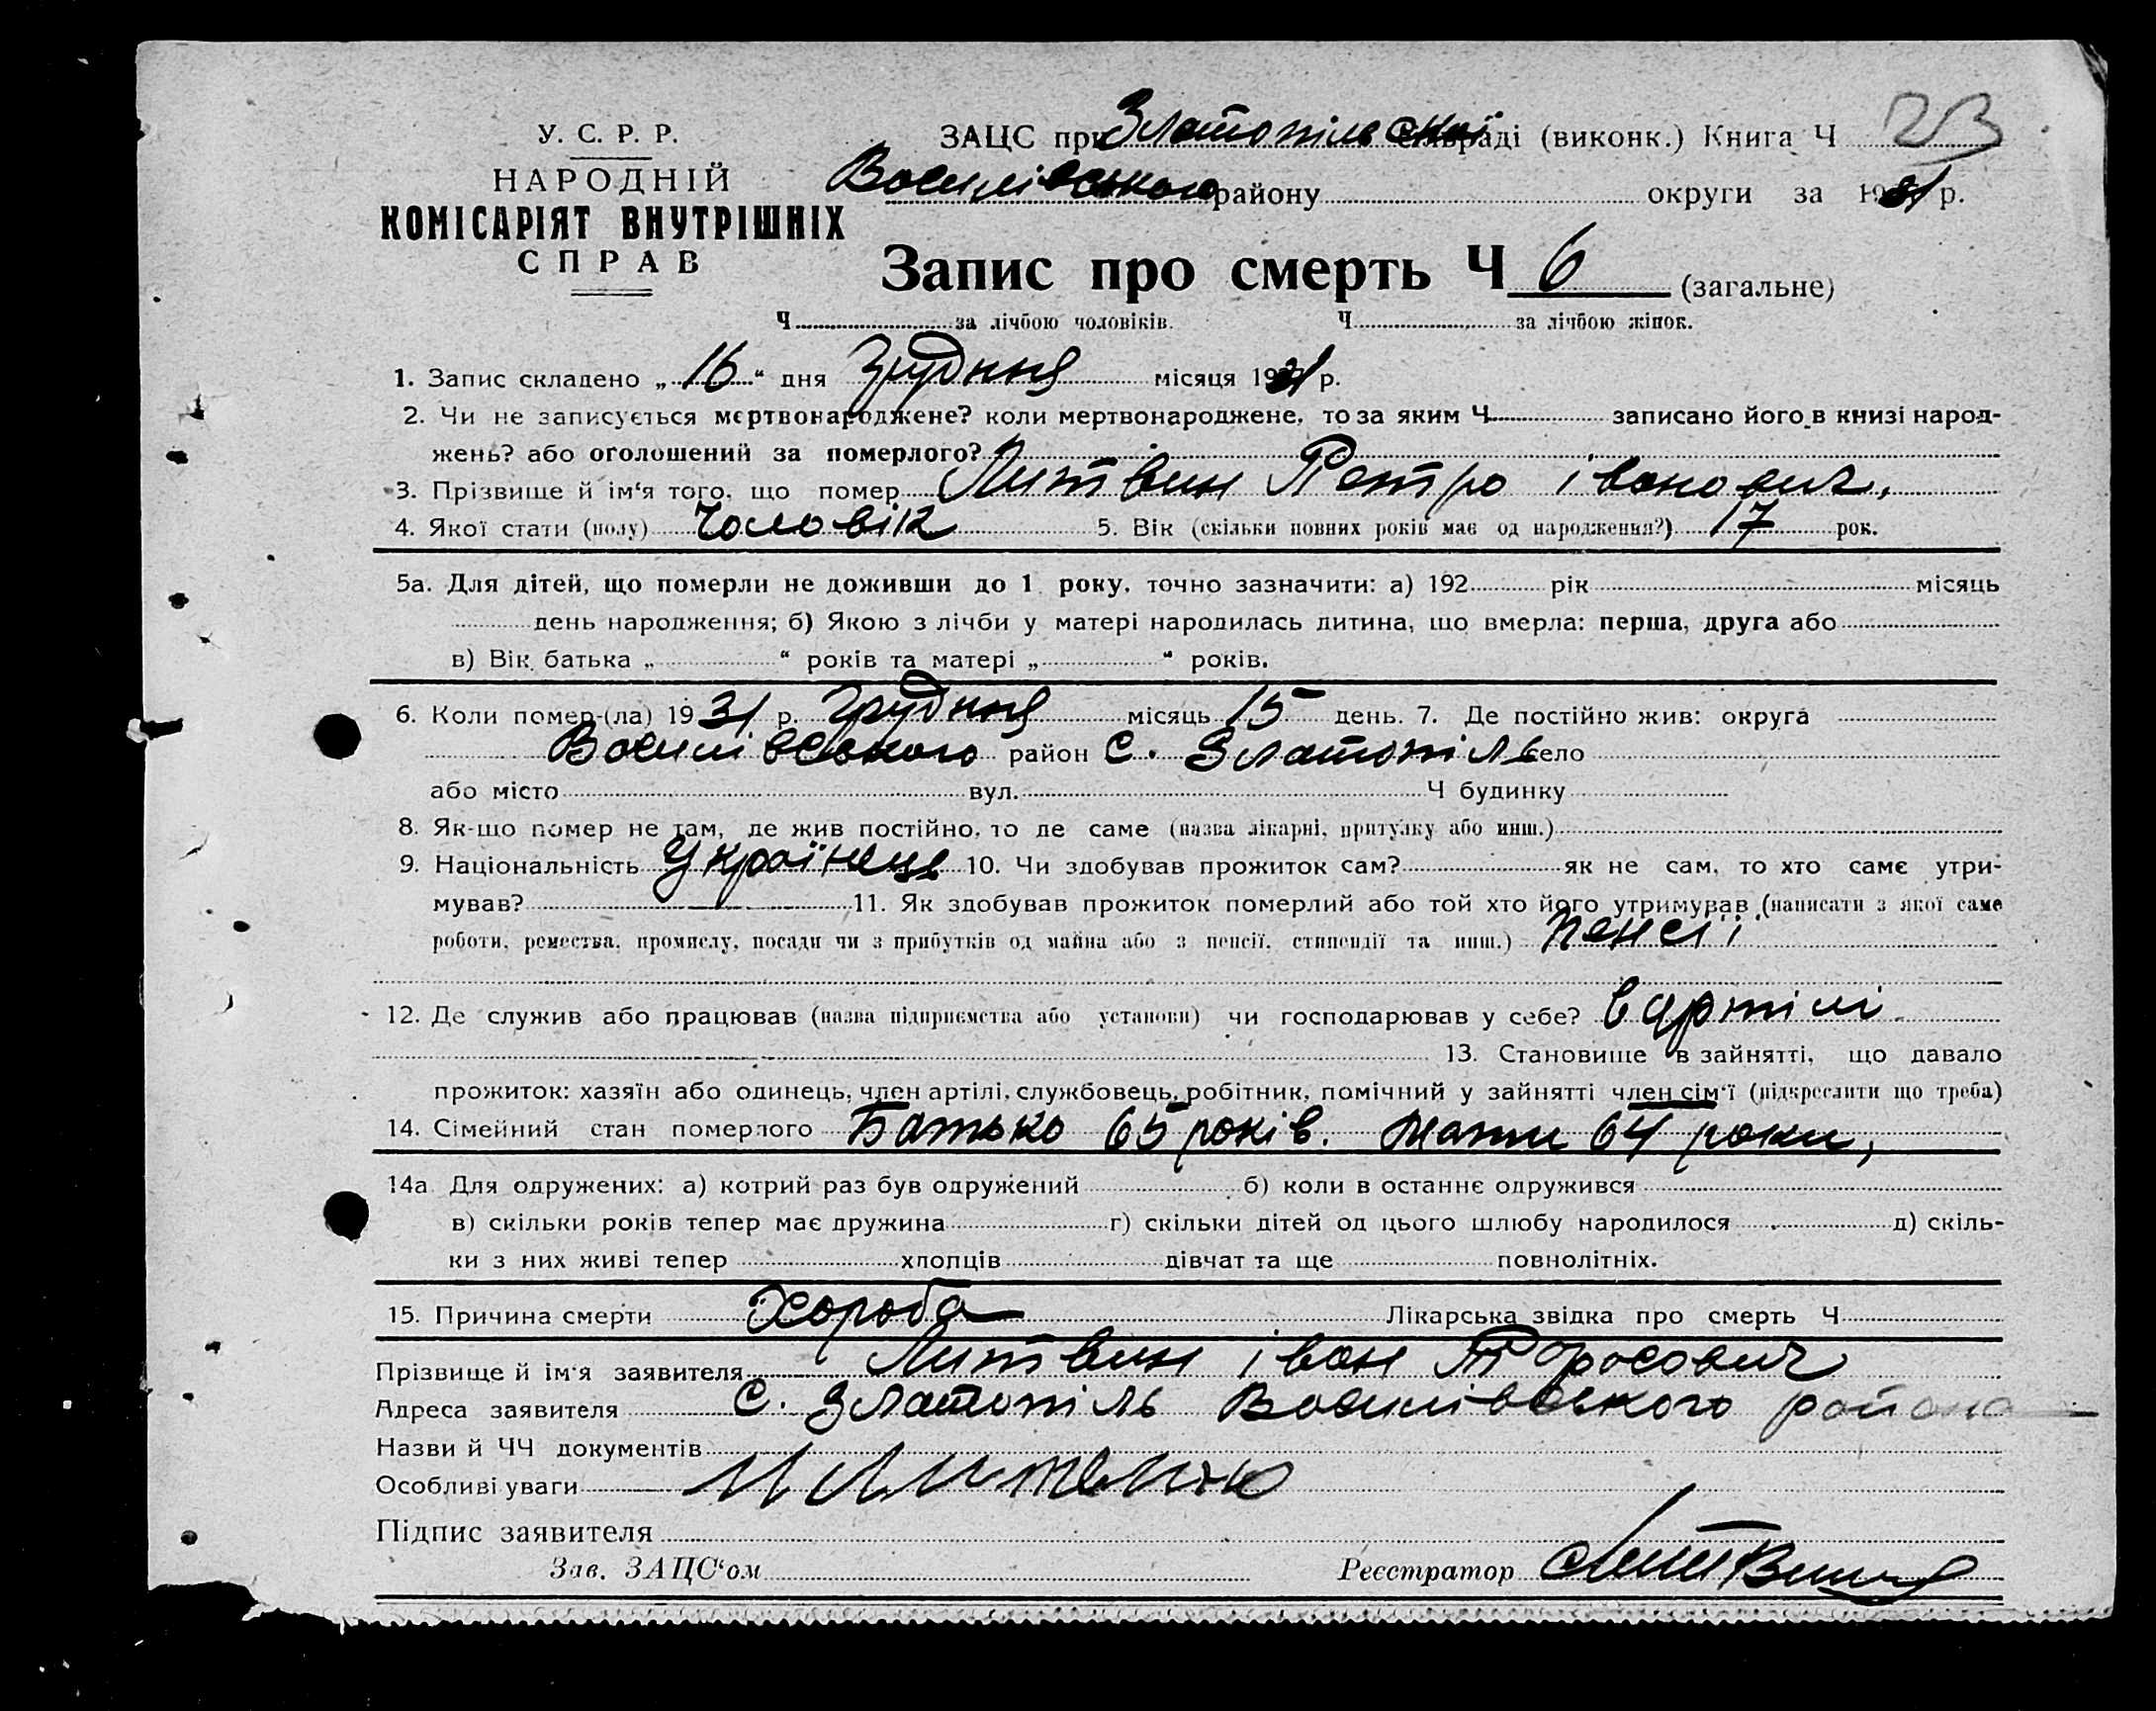 23
У. С. Р. Р.
НАРОДНІЙ
КОМІСАРІЯТ ВНУТРІШНІХ
СПРАВ
ЗАЦС при Златопільської сільраді (виконк.) Книга Ч
Василівського району округи за 1931 р.
Запис про смерть Ч 6 (загальне)
Ч за лічбою чоловіків. Ч за лічбою жінок.
1. Запис складено „16“ дня Грудння місяця 1931 р.
2. Чи не записується мертвонароджене? коли мертвонароджене, то за яким Ч записано його в книзі народ-
жень? або оголошений за померлого?
3. Прізвище й ім‘я того, що помер Литвин Петро івонович,
4. Якої стати (полу) Чоловік 5. Вік (скільки повних років має од народження?) 17 рок.
5а. Для дітей, що померли не доживши до 1 року, точно зазначити: а) 192 рік місяць
день народження; б) Якою з лічби у матері народилась дитина, що вмерла: перша, друга або
в) Вік батька „ “ років та матері „ “ років.
6. Коли помер-(ла) 1931 р. Грудння місяць 15 день. 7. Де постійно жив: округа
Василівського район С. Златопіль село
або місто вул. Ч будинку
8. Як-що помер не там, де жив постійно, то де саме (назва лікарні, притулку або инш.)
9. Національність Українець 10. Чи здобував прожиток сам? як не сам, то хто саме утри-
мував? 11. Як здобував прожиток померлий або той хто його утримував (написати з якої саме
роботи, ремества, промислу, посади чи з прибутків од майна або з пенсії, стипендії та инш.) пенсії
12. Де служив або працював (назва підприємства або установи) чи господарював у себе? в артілі
13. Становище в зайнятті, що давало
прожиток: хазяїн або одинець, член артілі, службовець, робітник, помічний у зайнятті член сім‘ї (підкреслити що треба)
14. Сімейний стан померлого Батько 65 років. мати 64 роки,
14а Для одружених: а) котрий раз був одружений б) коли в останнє одружився
в) скільки років тепер має дружина г) скільки дітей од цього шлюбу народилося д) скіль-
ки з них живі тепер хлопців дівчат та ще повнолітніх.
15. Причина смерти Хороба Лікарська звідка про смерть Ч
Прізвище й ім‘я заявителя Литвин івон Тарасович
Адреса заявителя С. Златопіль Василівського района
Назви й ЧЧ документів
Особливі уваги
Підпис заявителя
Зав. ЗАЦС‘ом Реєстратор Литвин